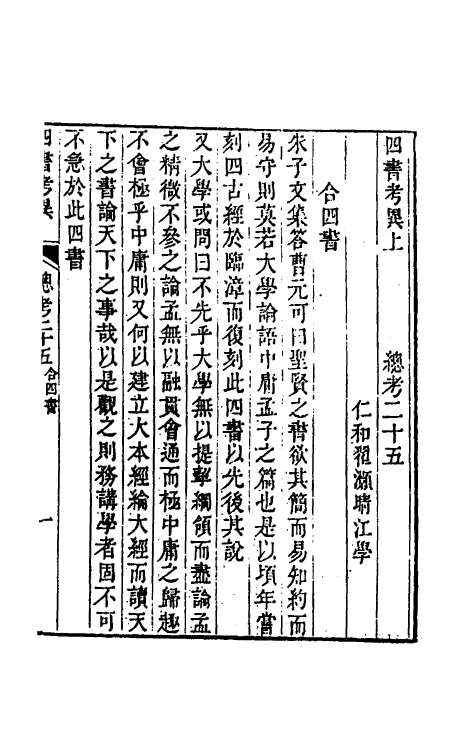 四書考異上　總考二十五
仁和翟灝晴江學
合四書
朱子文集答曹元可曰聖賢之書欲其簡而易知約而
易守則莫若大學論語中庸孟子之篇也是以頃年嘗
刻四古經於臨漳而復刻此四書以先後其說
又大學或問曰不先乎大學無以提挈綱領而盡論孟
之精微不參之論孟無以融貫會通而極中庸之歸趣
不會極乎中庸則又何以建立大本經綸大經而讀天
下之書論天下之事哉以是觀之則務講學者固不可
不急於此四書
四書考異　總考二十五　合四書　一